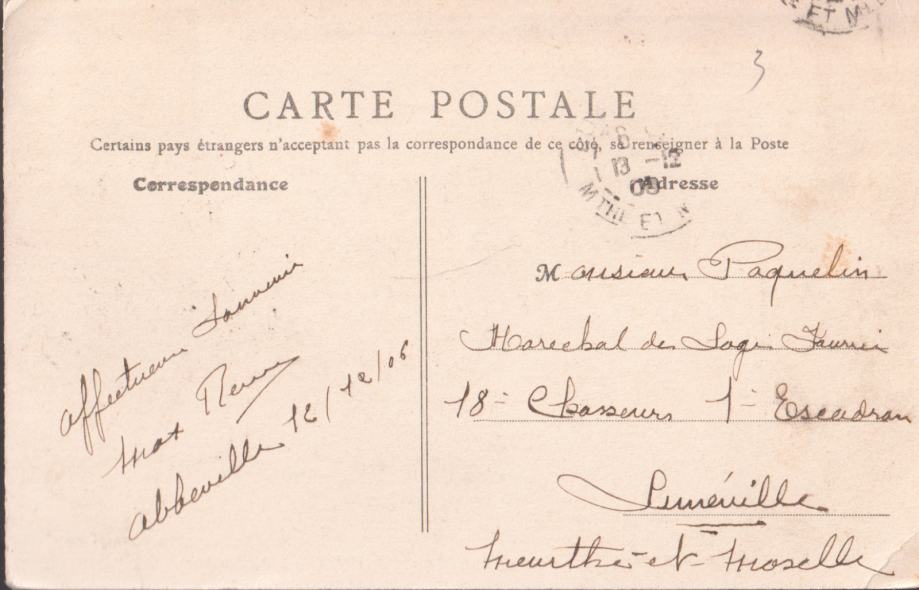 ET M
3
CARTE POSTALE
Certains pays étrangers n'acceptant pas la correspondance de ce côté, se renseigner à la Poste
Correspondance
Adresse
13 -12
MTHE ET M
Affectueux Souvenir
Max
Abbeville 12/12/06
Monsieur Paquelin
Marechal des Logis Fourrier
18e Chasseurs 1er Escadron
Lunéville
Meurthe-et-Moselle